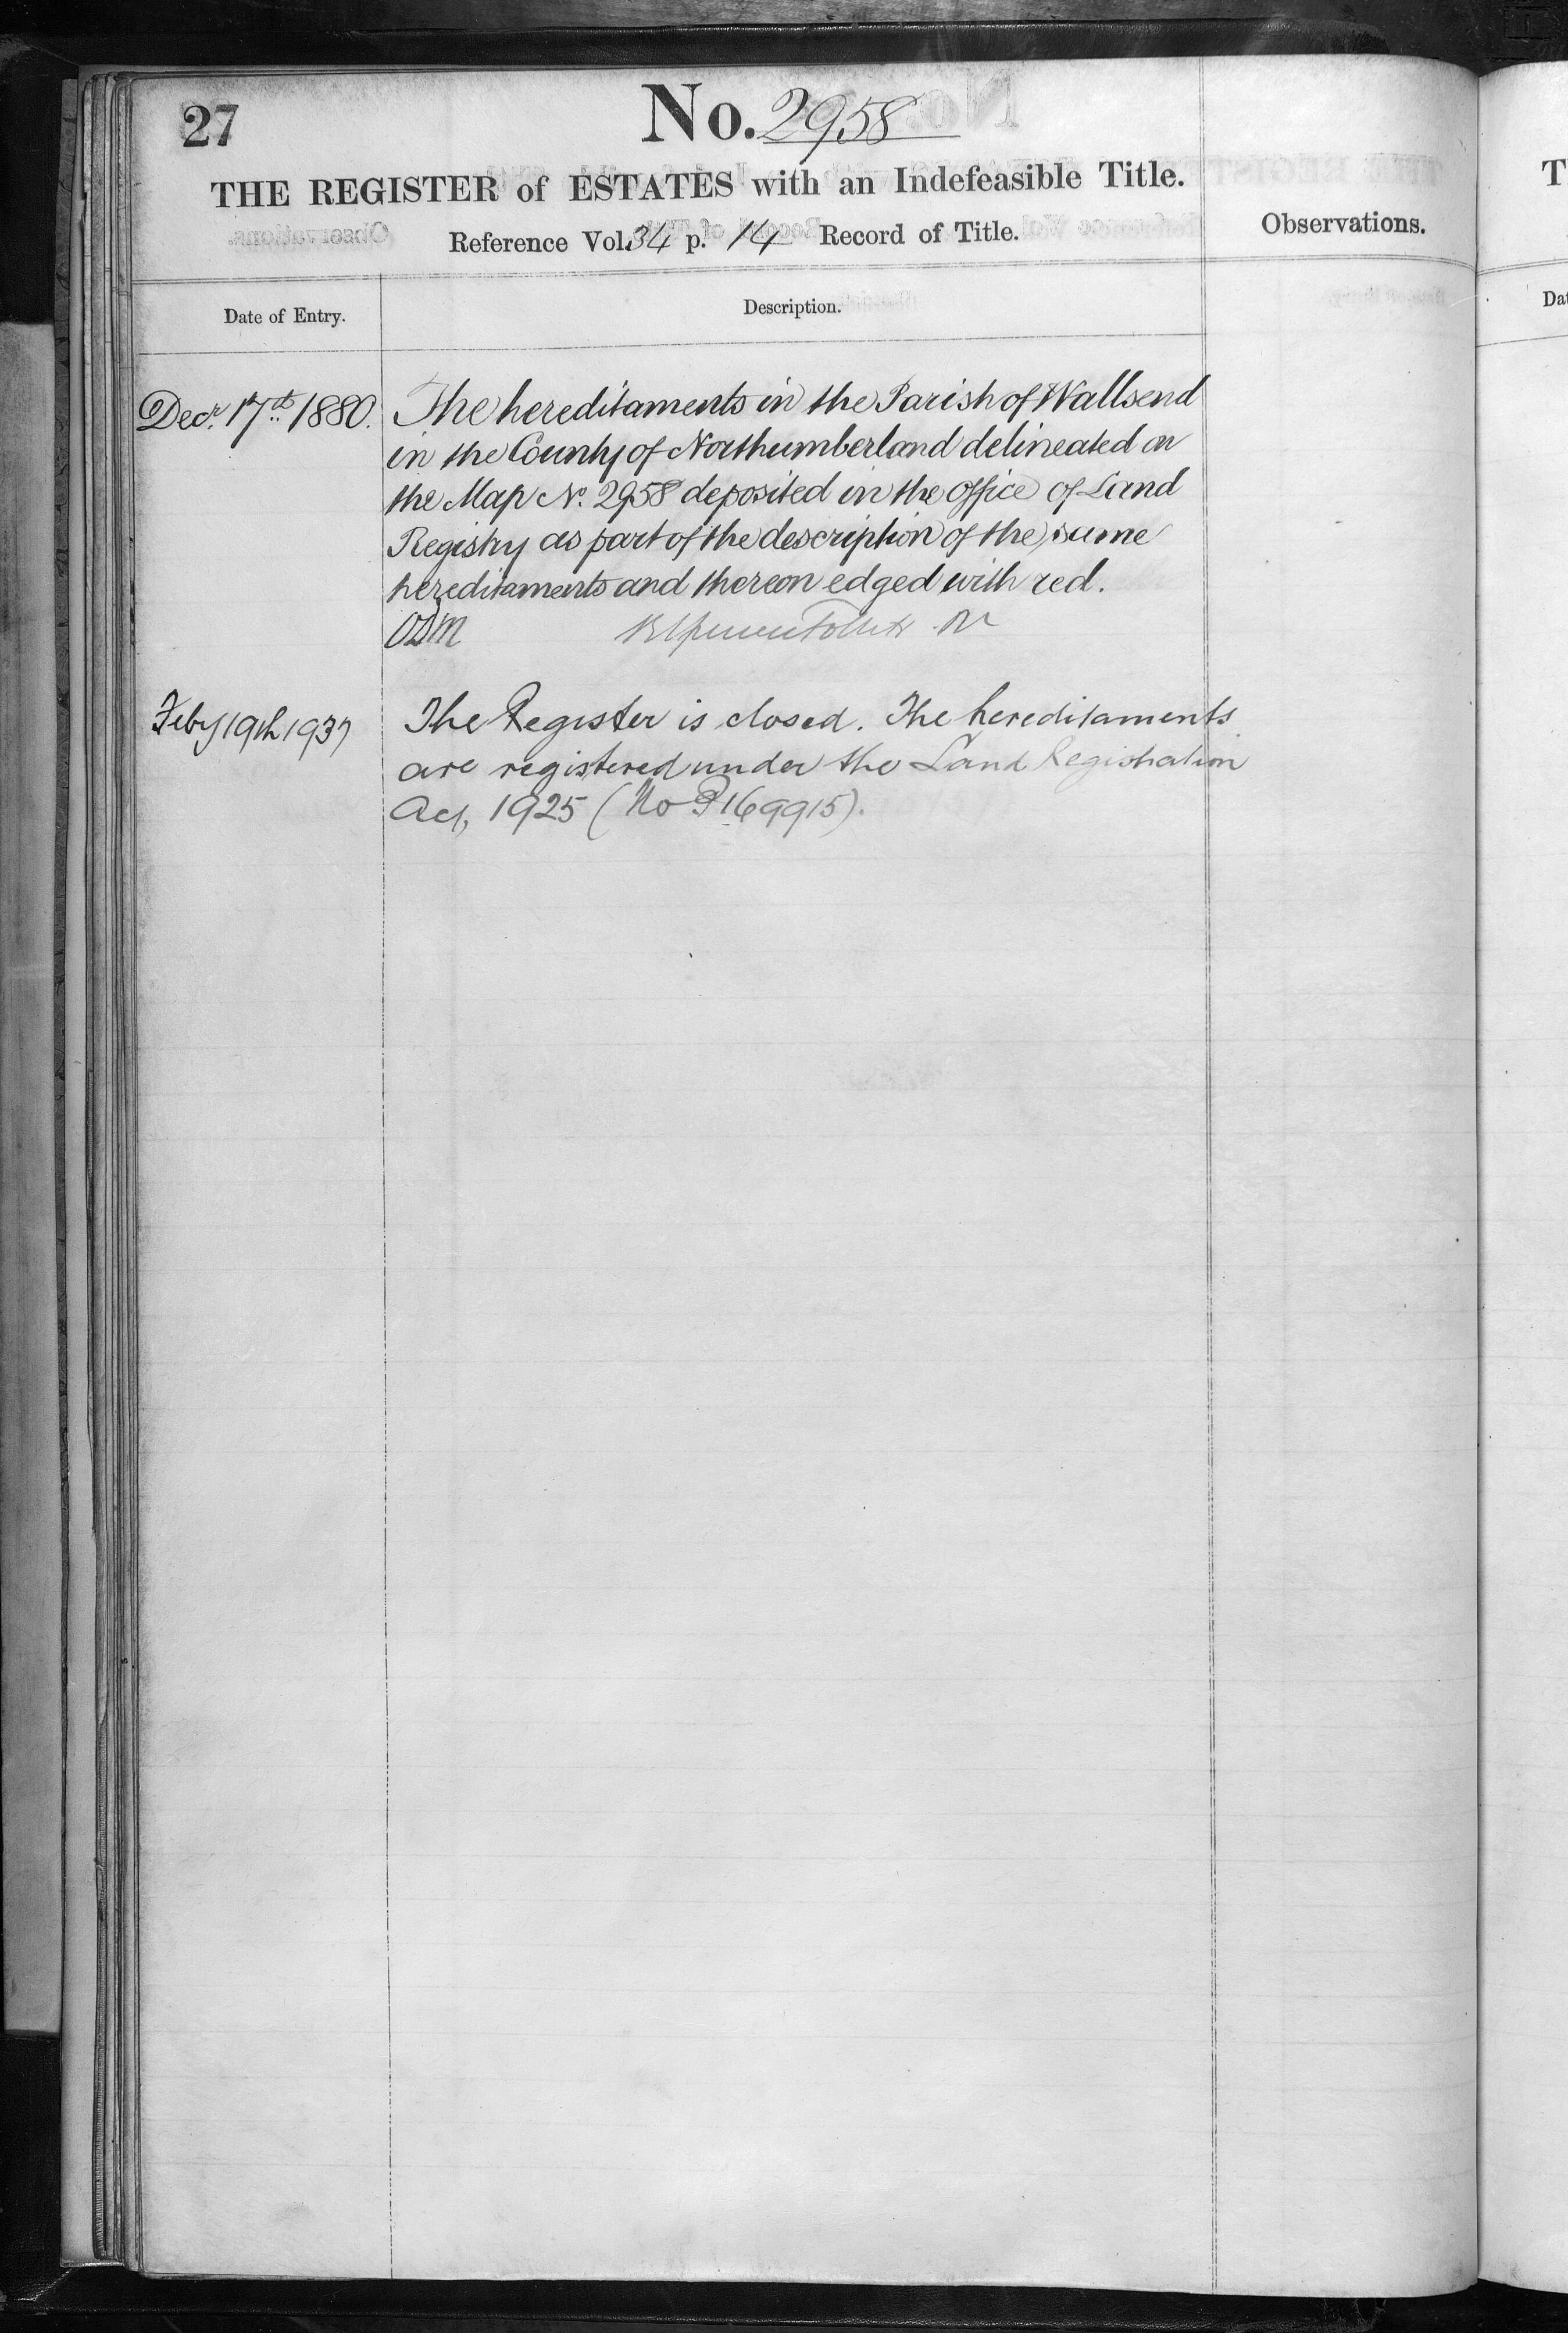 27
No. 2958
THE REGISTER of ESTATES with an Indefeasible Title.
Reference Vol. 34 p. 14 Record of Title.
Observations.
Date of Entry.
Description.
Decr. 17th 1880.
The hereditaments in the Parish of Wallsend
in the County of Northumberland delineated on
the Map No. 2958 deposited in the Office of Land
Registry as part of the description of the same
hereditaments and thereon edged with red.
Feby 19th 1937
The Register is closed. The hereditaments
are registered under the Land Registration
Act, 1925 (No P169915).